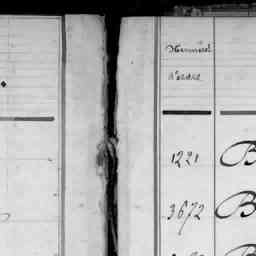 Numéros
d'ordre
1221 B
3672 B
B